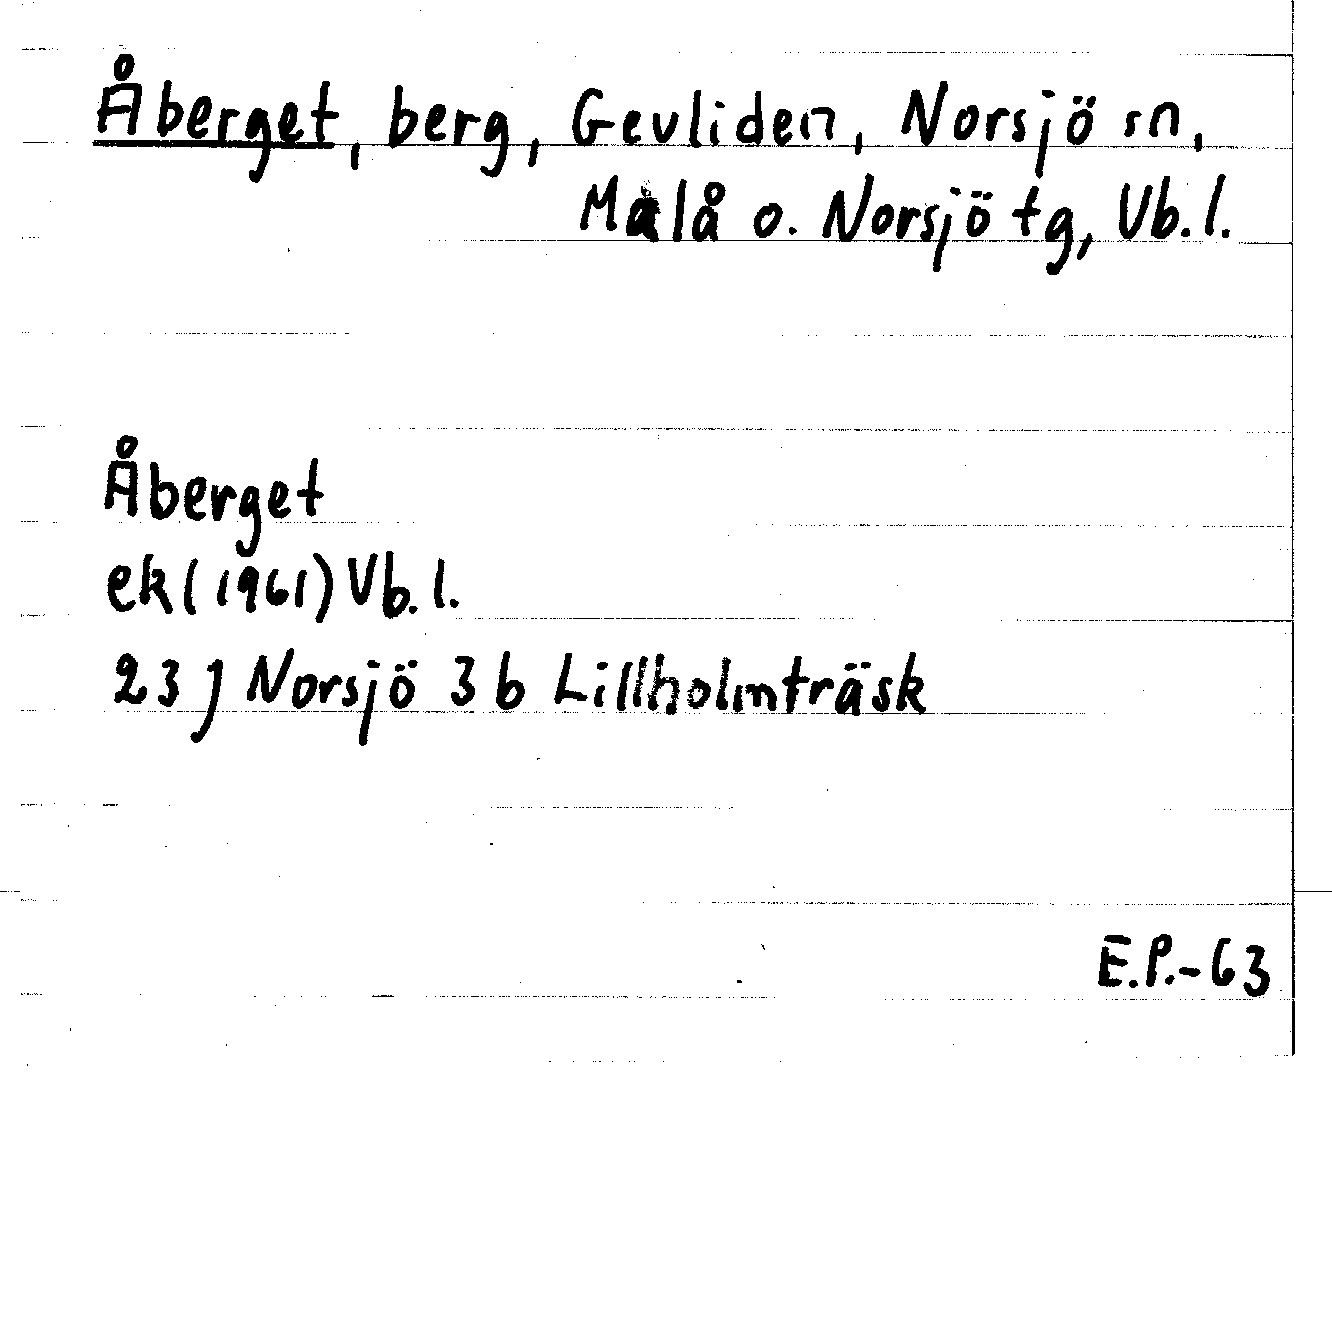 Åberget, berg, Gevliden, Norsjö sn,
Malå o. Norsjö tg, Vb.l.
Åberget
ek(1961) Vb.l.
23 J Norsjö 3 b Lillholmträsk
E.P.-63